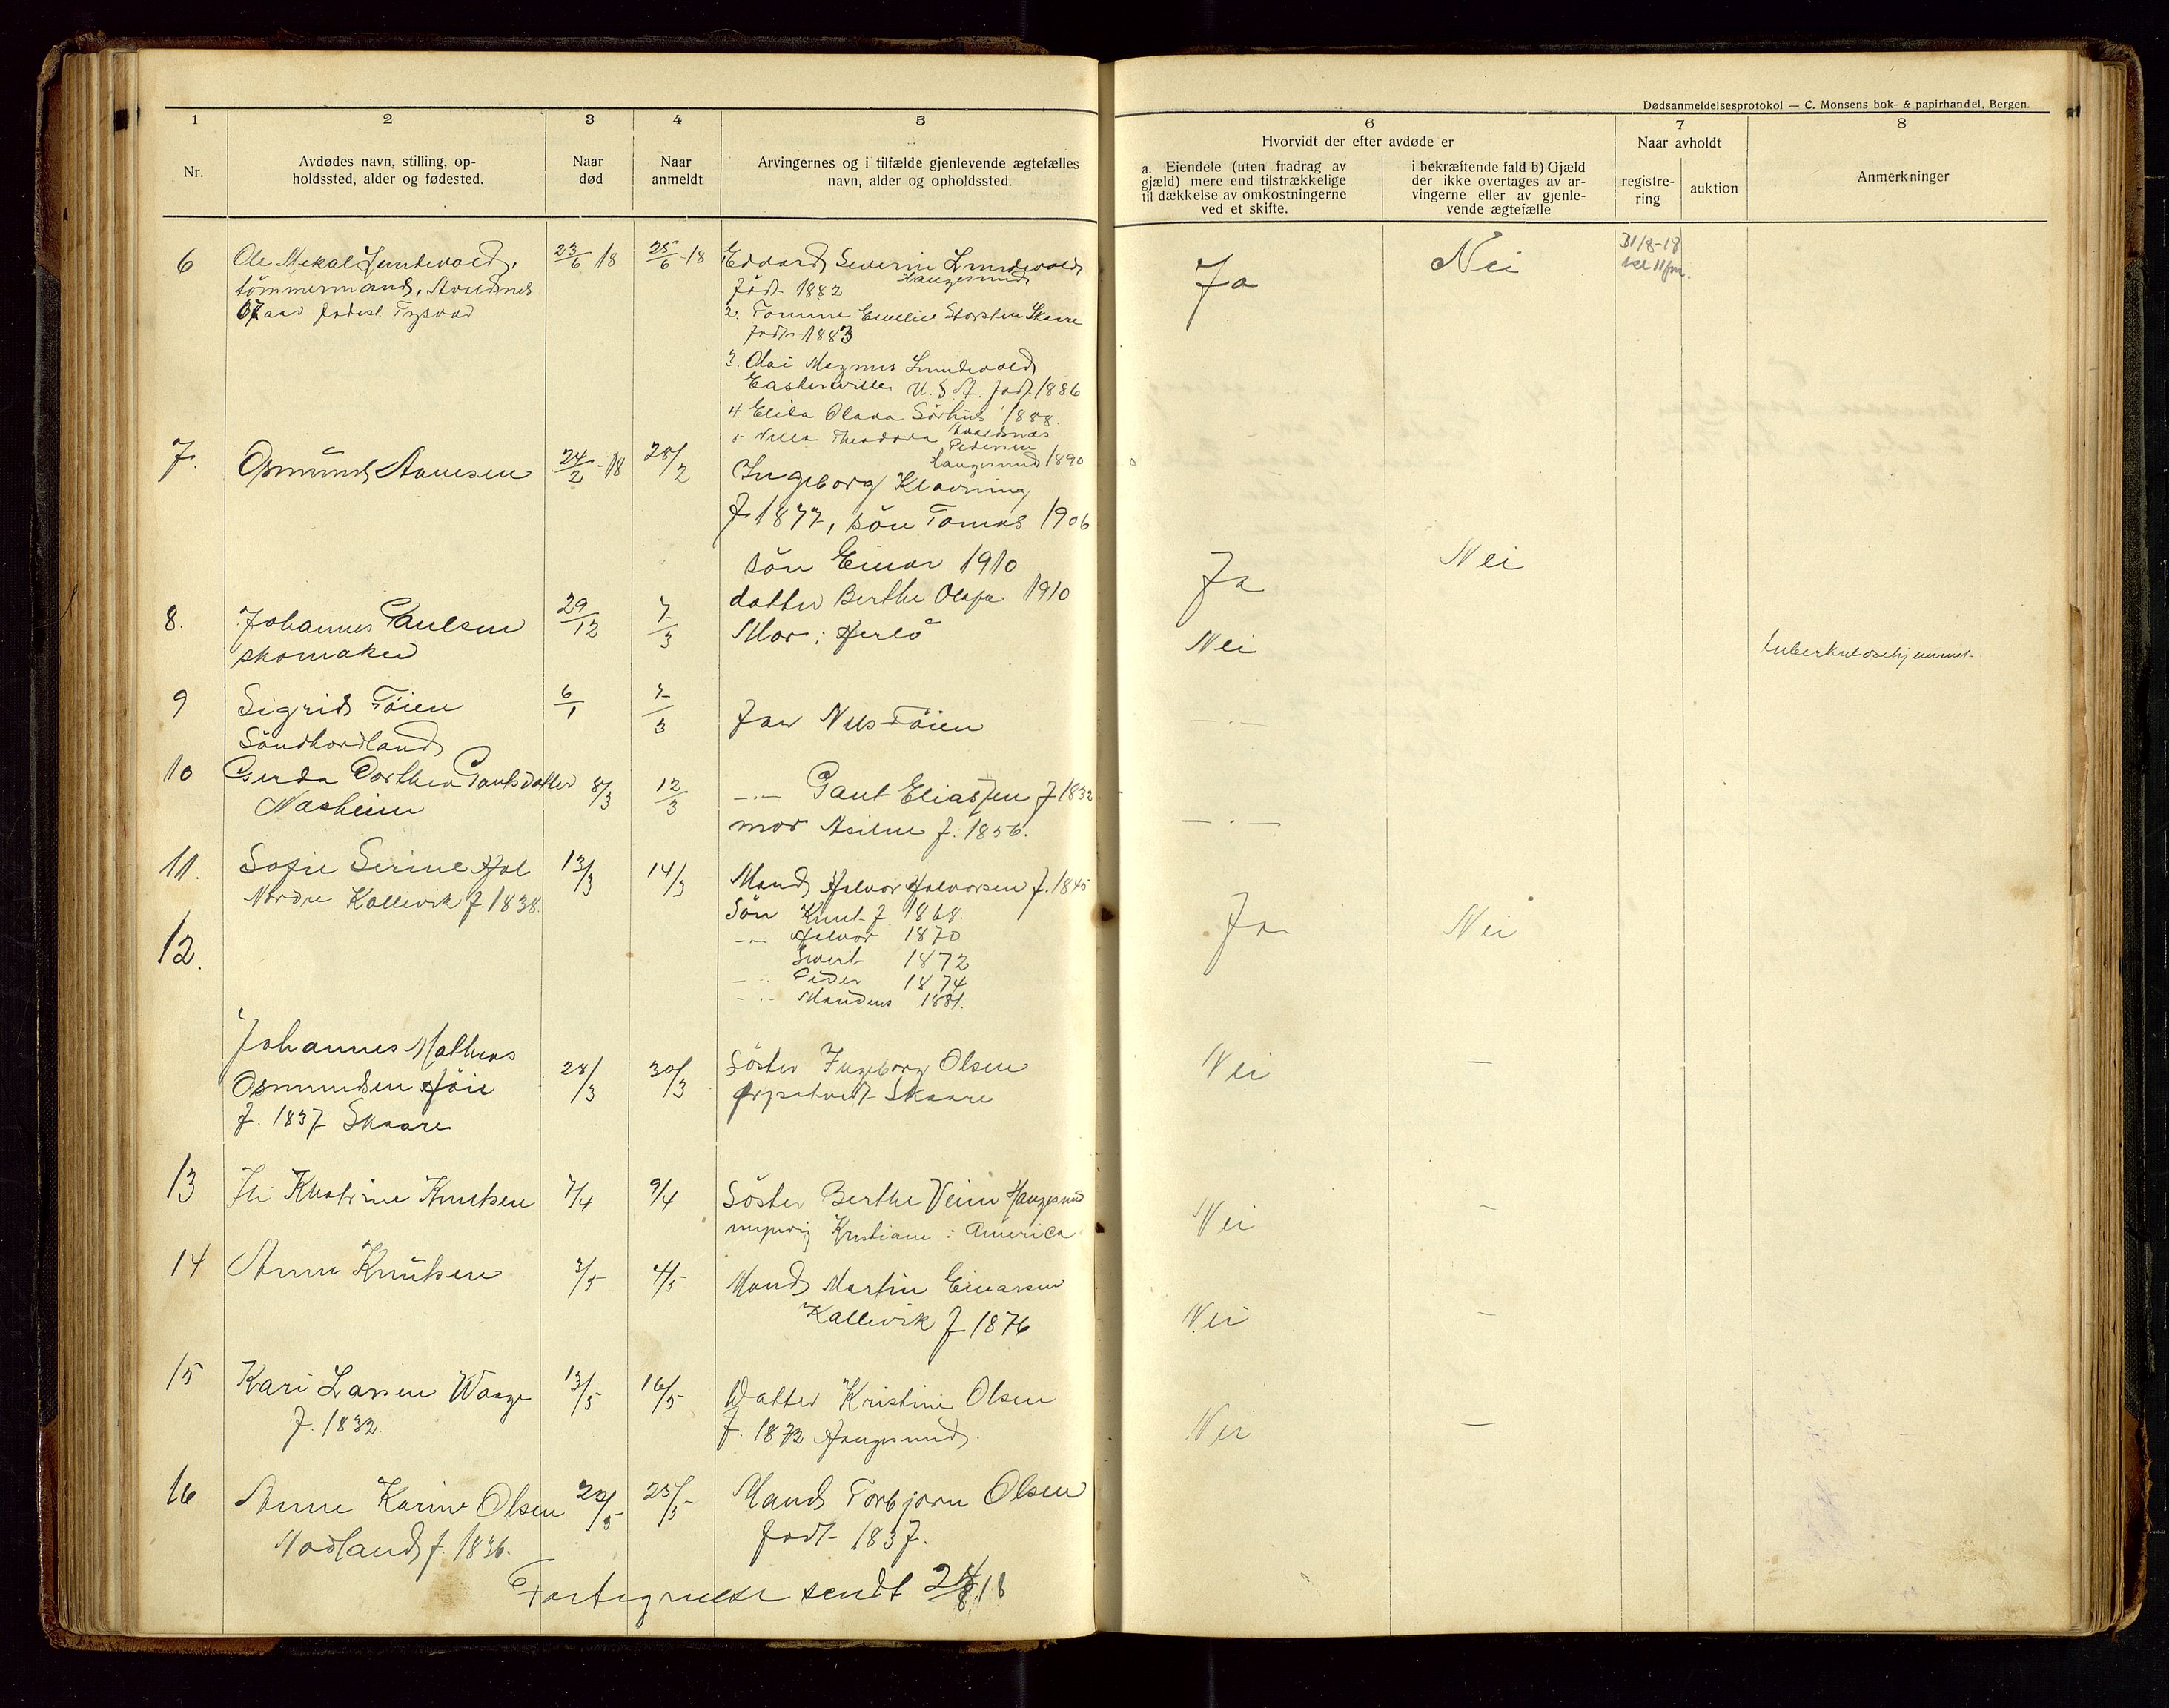 Dødsanmeldelsesprotokol — C. Monsens bok- & papirhandel, Bergen.
1 2 3 4 5 6 7 8
Nr.
Avdødes navn, stilling, op-
holdssted, alder og fødested.
Naar
død
Naar
anmeldt
Arvingernes og i tilfælde gjenlevende ægtefælles
navn, alder og opholdssted.
Hvorvidt der efter avdøde er
a. Eiendele (uten fradrag av
gjæld) mere end tilstrækkelige
til dækkelse av omkostningerne
ved et skifte.
i bekræftende fald b) Gjæld
der ikke overtages av ar-
vingerne eller av gjenle-
vende ægtefælle
Naar avholdt
registre-
ring
auktion
Anmerkninger
6 Ole Mekal Lundevold, 23/6 18 25/6-18 1. Edvard Severin Lundevold Ja Nei 31/8-18
tömmermand, Avaldsnes Haugesund kl 11 fm.
67 aar fødest. Tysvær født 1882
2. Tomine Emelie Storsten Skaare
født 1883
3. Olai Magnus Lundevold
U.S.A. født 1886
4. Elida Olava Sörhus 1888
Avaldsnes
5 Theodora Pedersen
Haugesund 1890
7. Osmund Aanesen 24/2-18 28/2 Ingeborg Klovning
f 1877, sön Tomas 1906
sön Einar 1910 Ja Nei
datter Berthe Olafa 1910
8. Johannes Paulsen 29/12 7/3 Mor: Herlö Nei tuberkulosehjemmet
skomaker
9 Sigrid Töien 6/1 7/3 Far Nils Töien —"—
Söndhordland
10 Gerda Dorthea Gautsdatter 8/3 12/3 —"— Gaut Eliassen f 1832 —"—
Nasheim mor Asiline f. 1856.
11. Sofie Serine Hol 13/3 14/3 Mand Halvor Halvorsen f. 1845
Nordre Kallevik f 1838. Sön Knut f 1868. Ja Nei
—"— Halvor 1870
12. Sivert 1872
—"— Peder 1874
—"— 1881.
Johannes Mathias
Osmundsen Höie 28/3 30/3 Söster Ingeborg Olsen Nei —
f. 1837 Skaare Skaare
13 Kathrine Knutsen 7/4 9/4 Söster Berthe Veim Haugesund Nei —
Kristiane : America
14 Anne Knutsen 3/5 4/5 Mand Martin Einarsen Nei —
Kallevik f 1876
15 Kari Larsen Waage 13/5 16/5 Datter Kristine Olsen Nei —
f. 1832. f. 1872 Haugesund.
16 Anne Karine Olsen 22/5 25/5 Mand Torbjørn Olsen
f. 1836. født 1837.
Fortegnelse sendt 24/8 18